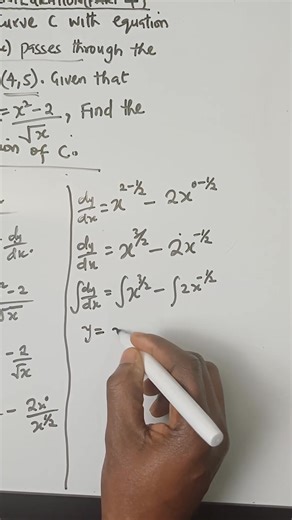 Curve C with equation
passes through the
(4,5). Given that
= x² - 2 / √x, Find the
of C.
dy/dx = x^(2-1/2) - 2x^(0-1/2)
dy/dx.
dy/dx = x^(3/2) - 2x^(-1/2)
- 2
√x
∫dy/dx = ∫x^(3/2) - ∫2x^(-1/2)
- 2/√x
y =
- 2x⁰/x^(1/2)